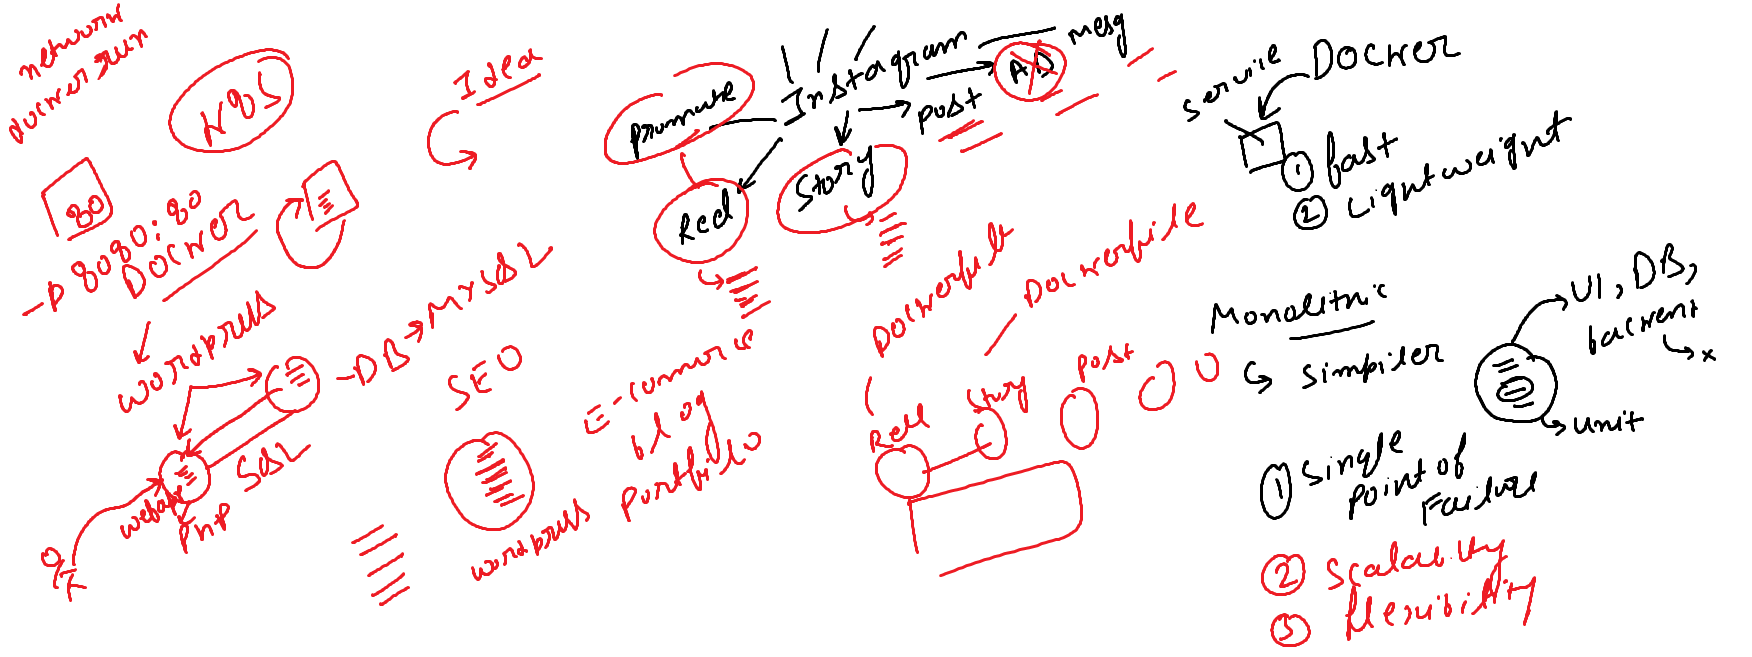 network
docker run
K8S
Idea
80
-P 8080:80
Docker
wordpress
-DB → MySQL
SQL
webapp
PHP
SEO
E-commerce
blog
portfolio
wordpress
Instagram
mesg
AD
post
promote
Story
Reel
Dockerfile
Dockerfile
Reel
Story
post
service
Docker
① fast
② Lightweight
Monolithic
↳ Simpiler
UI, DB,
backent
↳ x
↳ unit
① Single
point of
Failure
② Scalability
③ flexibility